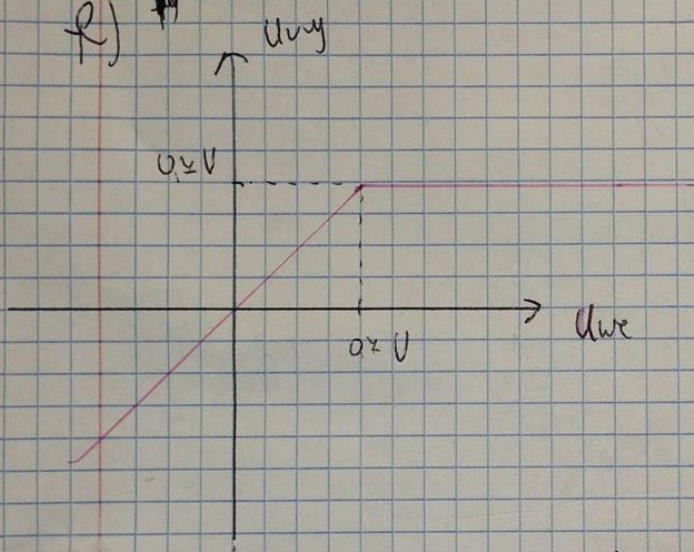 f)
Uwy
0,7 V
0,7 V
Uwe